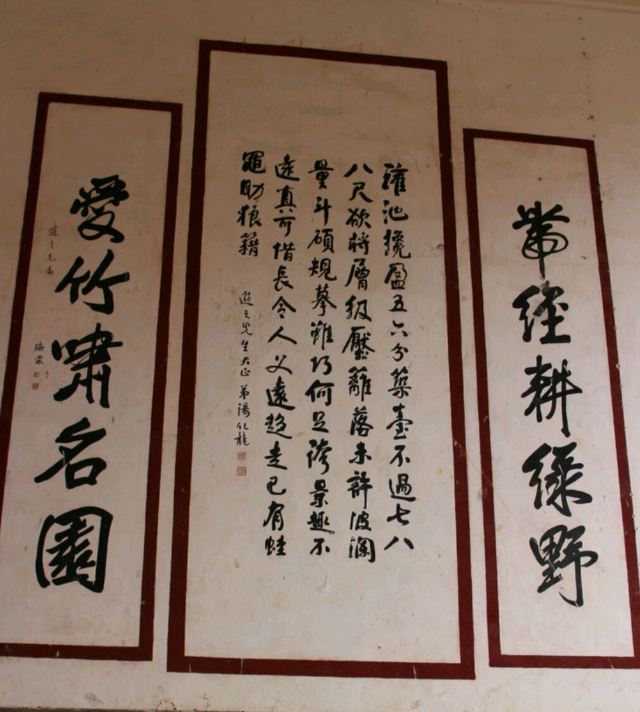 帶經耕綠野
灌池纔盈五六分築臺不過七八
八尺欲將層級壓籬落未許波瀾
量斗碩規摹雖巧何足誇景趣不
遠真可惜長令人吏遠趨走已有蛙
黽助狼籍
先生大正 弟湯化龍
愛竹嘯名園